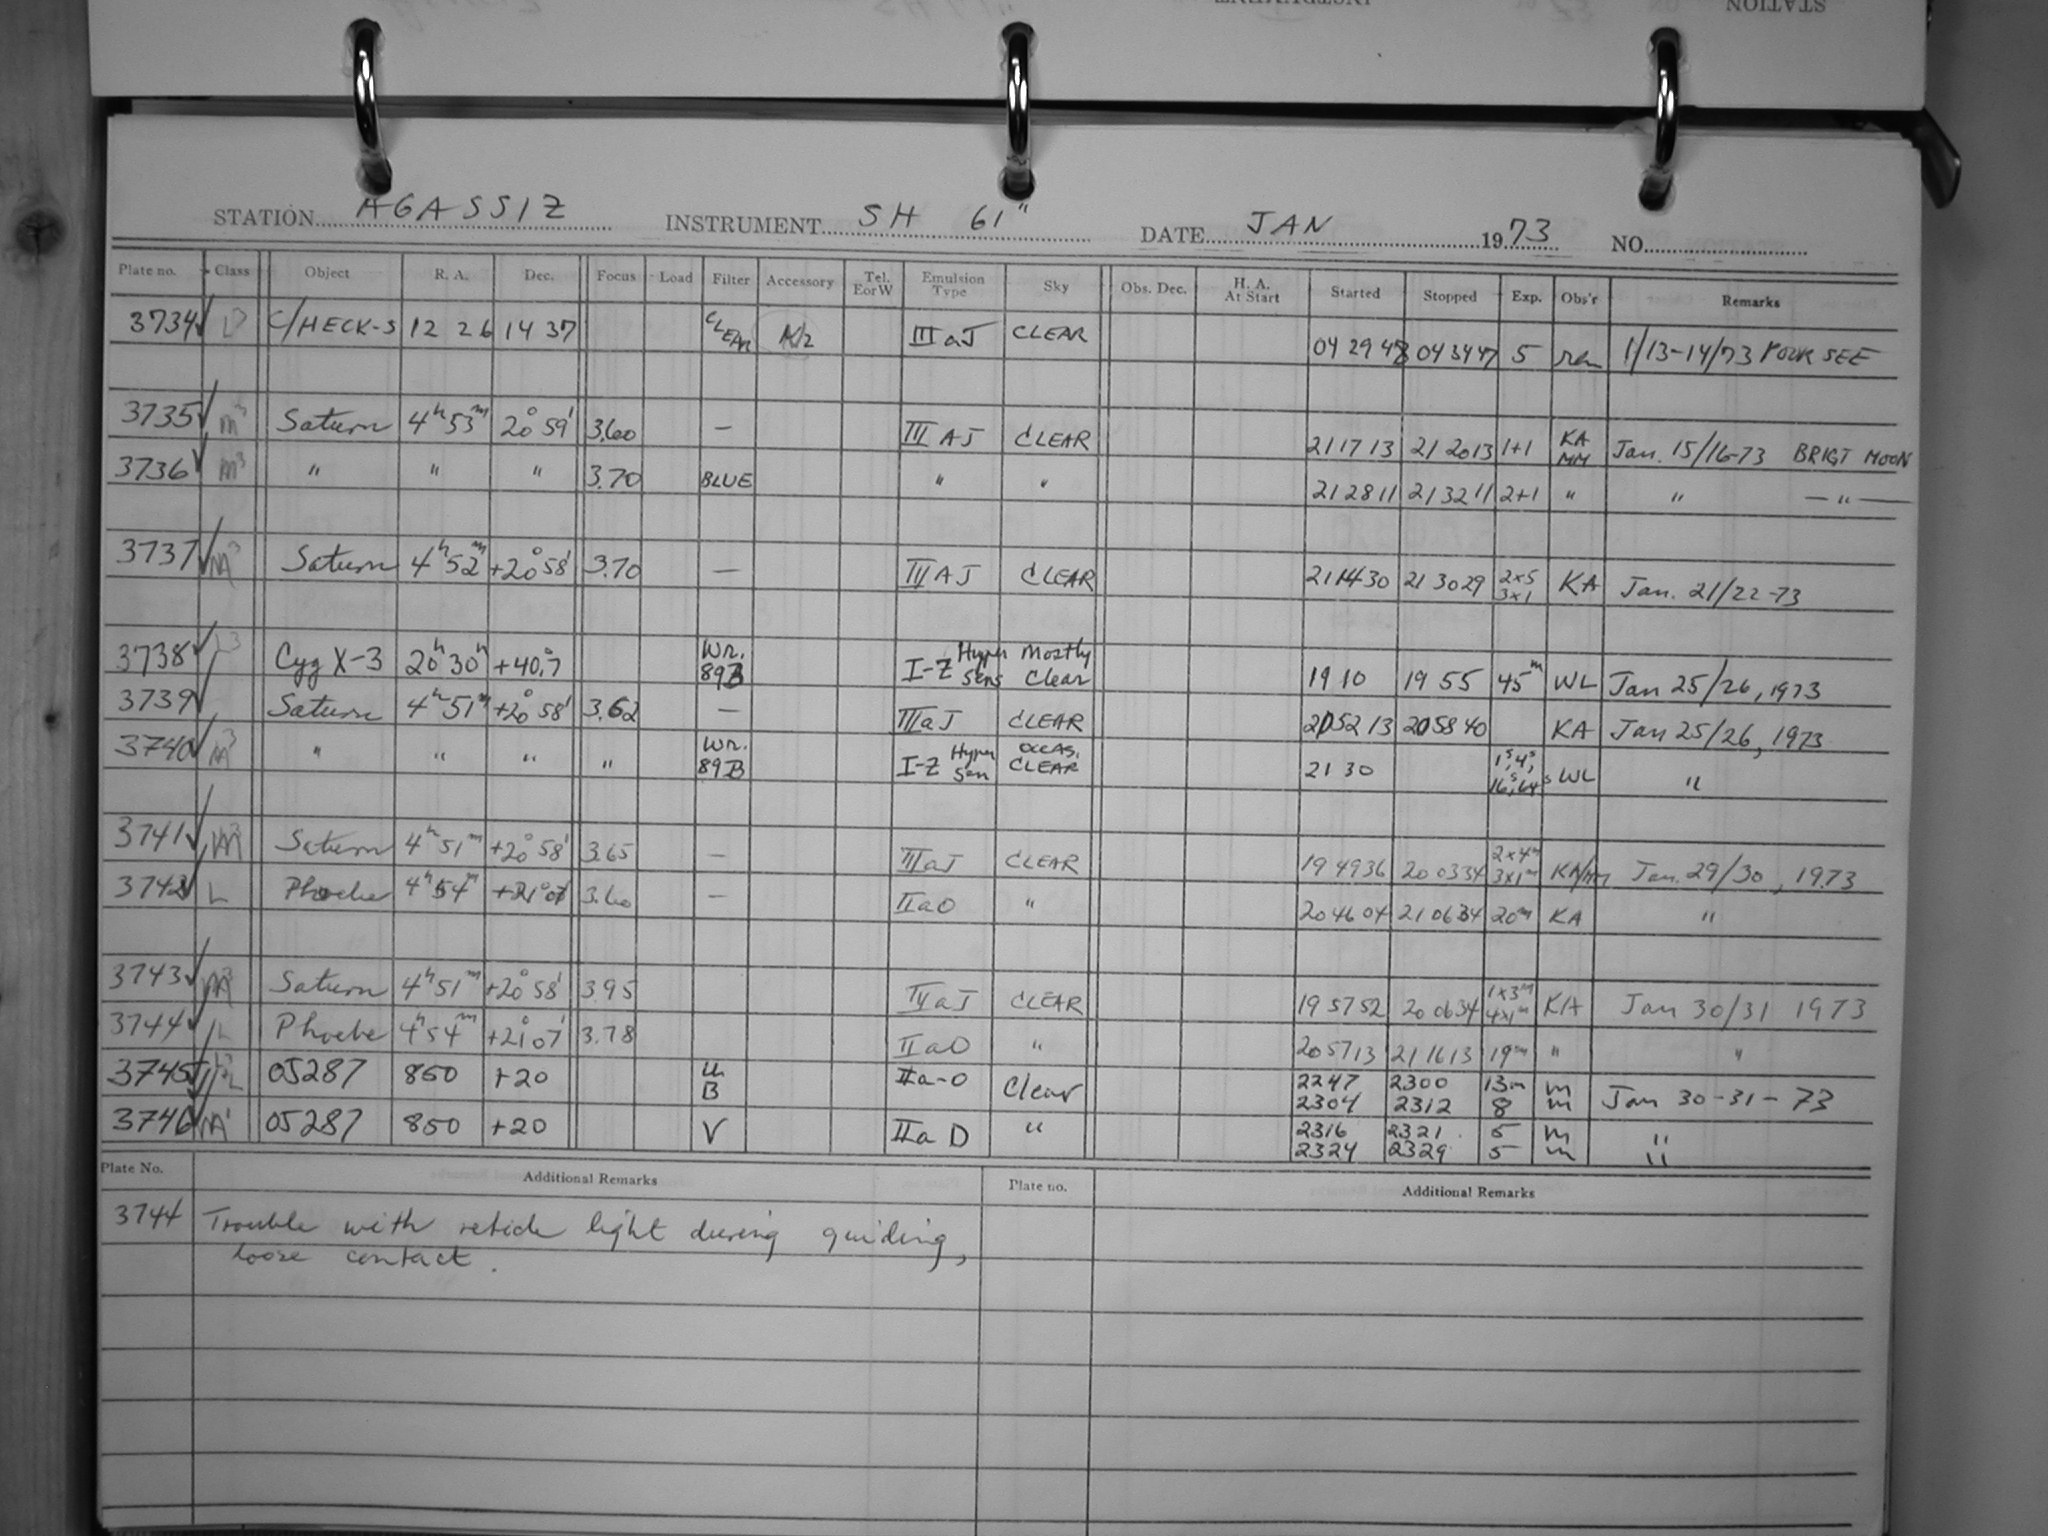 STATION AGASSIZ INSTRUMENT SH 61" DATE JAN 1973 NO.
Plate no. Class Object R. A. Dec. Focus Load Filter Accessory Tel. E or W Emulsion Type Sky Obs. Dec. H. A. At Start Started Stopped Exp. Obs'r Remarks
3734 L3 C/HECK-S 12 26 14 37 CLEAR IIIaJ CLEAR 04 29 48 04 34 47 5 1/13-14/73 POOR SEE
3735 m3 Saturn 4h 53m 20° 59' 3.60 — III AJ CLEAR 21 17 13 21 20 13 1+1 KA MM Jan. 15/16-73 BRIGT MOON
3736 m3 " " " 3.70 BLUE " " 21 28 11 21 32 11 2+1 " " — " —
3737 M3 Saturn 4h 52m +20° 58' 3.70 — III AJ CLEAR 21 14 30 21 30 29 2x5 3x1 KA Jan. 21/22-73
3738 L3 Cyg X-3 20h 30m +40°.7 Wr. 89B I-Z Hyper Sens Mostly Clear 19 10 19 55 45m WL Jan 25/26, 1973
3739 Saturn 4h 51m +20° 58' 3.62 — IIIaJ CLEAR 20 52 13 20 58 40 KA Jan 25/26, 1973
3740 M3 " " " " Wr. 89B I-Z Hyper Sen OCCAS. CLEAR 21 30 1s, 4s, 16s, 64s WL "
3741 M3 Saturn 4h 51m +20° 58' 3.65 — IIIaJ CLEAR 19 49 36 20 03 34 2x4m 3x1m KA/MM Jan. 29/30, 1973
3742 L Phoebe 4h 54m +21° 07 3.60 — IIaO " 20 46 04 21 06 34 20m KA "
3743 M3 Saturn 4h 51m +20° 58' 3.95 aJ CLEAR 19 57 52 20 06 34 1x3m 4x1m KA Jan 30/31 1973
3744 L Phoebe 4h 54m +21° 07' 3.78 IIaO " 20 57 13 21 16 13 19m " "
3745 L OJ287 850 +20 U B IIa-O Clear 2247 2300 13m m Jan 30-31-73
2304 2312 8 m
3746 M1 OJ287 850 +20 V IIa D " 2316 2321 5 m "
2324 2329 5 m "
Plate No. Additional Remarks Plate no. Additional Remarks
3744 Trouble with reticle light during guiding,
loose contact.